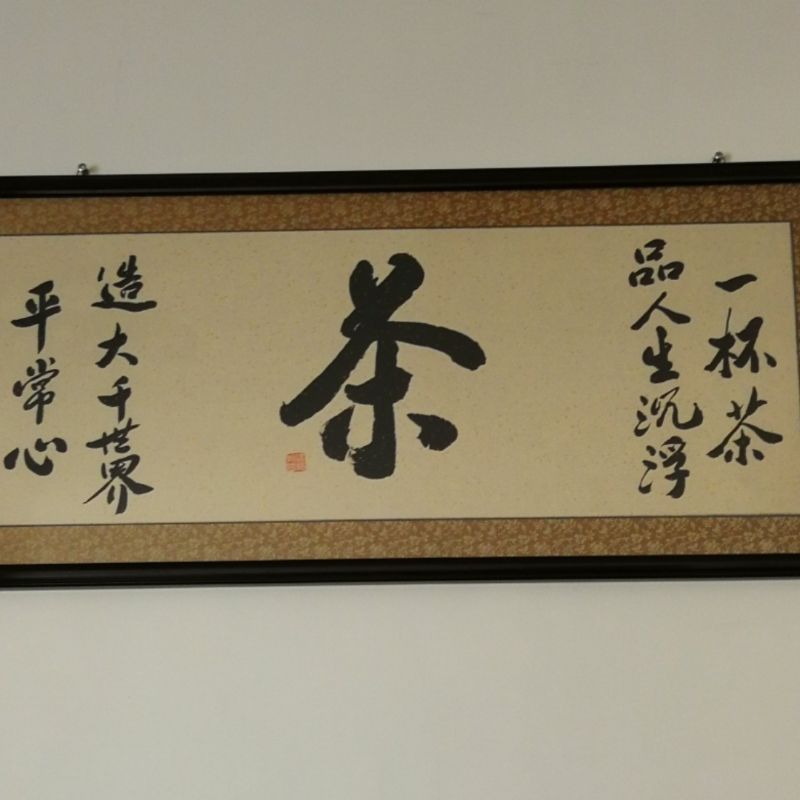 一杯茶
品人生沉浮
茶
平常心
造大千世界